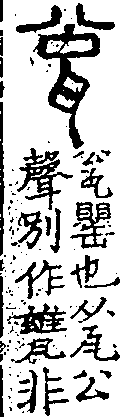 瓮
瓮罌也从瓦公
聲別作甕非